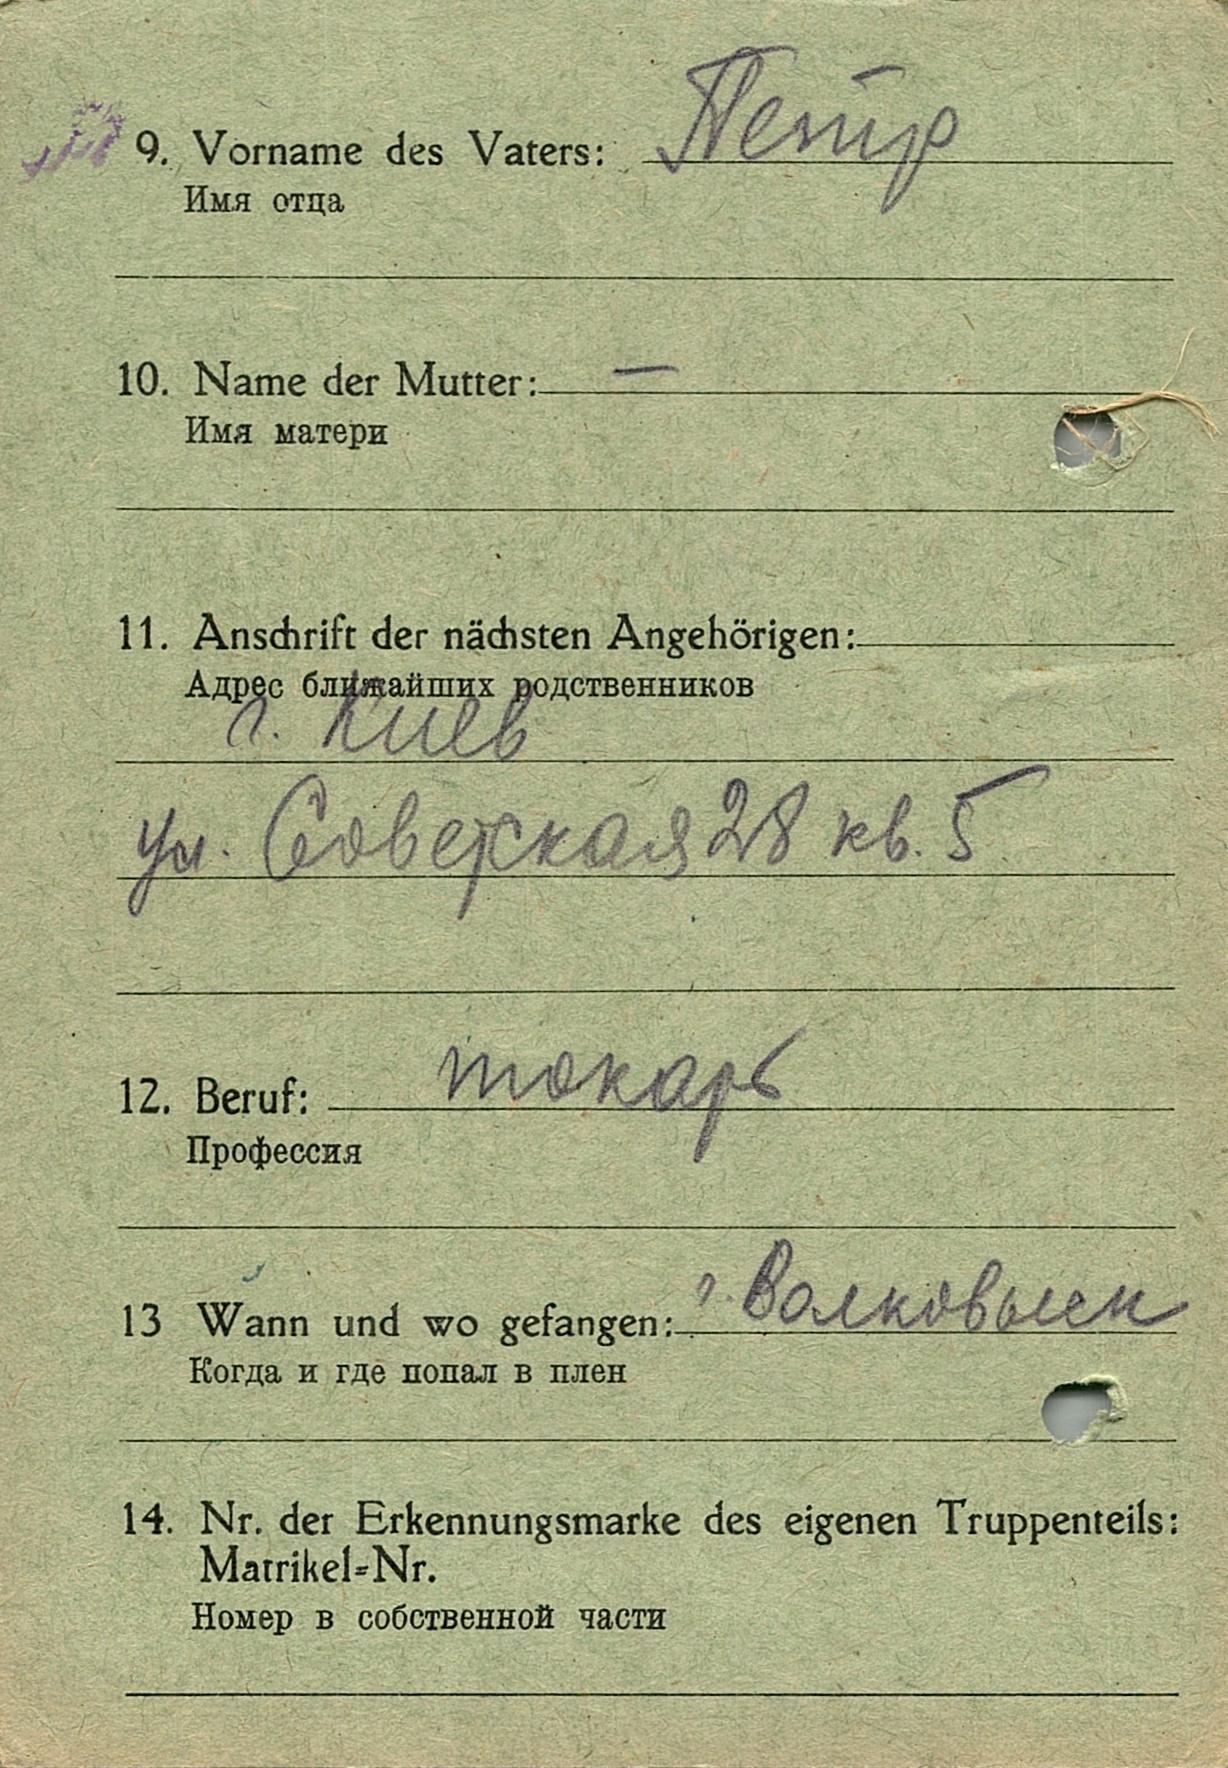 9. Vorname des Vaters: Петр
Имя отца
10. Name der Mutter: —
Имя матери
11. Anschrift der nächsten Angehörigen:
Адрес ближайших родственников
г. Киев
ул. Советская 28 кв. 5
12. Beruf: токарь
Профессия
13 Wann und wo gefangen: г. Волковыск
Когда и где попал в плен
14. Nr. der Erkennungsmarke des eigenen Truppenteils:
Matrikel=Nr.
Номер в собственной части